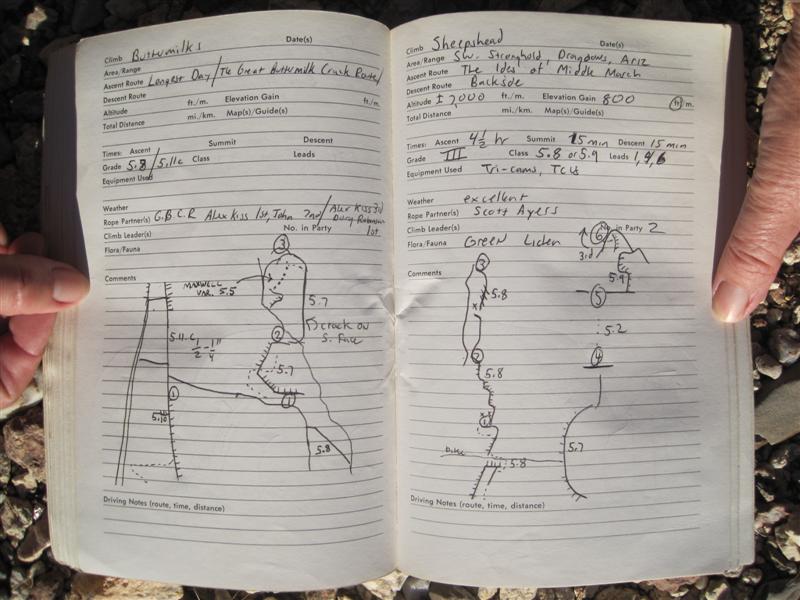 Climb Buttermilks Date(s)
Area/Range
Ascent Route Longest Day/The Great Buttermilk Crack Route/
Descent Route
Altitude ft./m. Elevation Gain ft./m.
Total Distance mi./km. Map(s)/Guide(s)
Times: Ascent Summit Descent
Grade 5.8/5.11c Class Leads
Equipment Used
Weather
Rope Partner(s) G.B.C.R Alex Kiss 1st, John 2nd/Alex Kiss 3rd
1st
Climb Leader(s) No. in Party
Flora/Fauna
Comments
3
MAXWELL
VAR. 5.5
5.7
crack on
S. Face
5.11.c
1/2 - 1 1/4"
2
5.7
1
1
5.10
5.8
Driving Notes (route, time, distance)
Climb Sheepshead Date(s)
Area/Range SW. Stronghold, Dragoons, Ariz
Ascent Route The Ides of Middle March
Descent Route Backside
Altitude ± 7,000 ft./m. Elevation Gain 800 ft./m.
Total Distance mi./km. Map(s)/Guide(s)
Times: Ascent 4 1/2 hr Summit 15 min Descent 15 min
Grade III Class 5.8 or 5.9 Leads 1,4,6
Equipment Used Tri-cams, TCUs
Weather excellent
Rope Partner(s) Scott Ayers
Climb Leader(s) No. in Party 2
Flora/Fauna Green Liken
Comments
6
3rd
5.9
3
5.8
5
5.2
2
4
5.8
1
5.7
5.8
Driving Notes (route, time, distance)